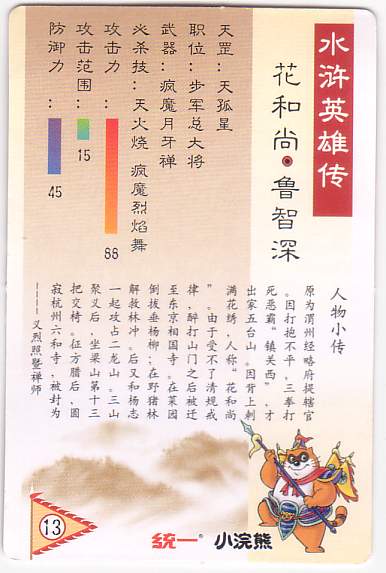 水浒英雄传
花和尚•鲁智深
天罡：天孤星
职位：步军总大将
武器：疯魔月牙禅
必杀技：天火烧 疯魔烈焰舞
攻击力：
88
攻击范围：
15
防御力：
45
人物小传
原为渭州经略府提辖官
。因打抱不平，三拳打
死恶霸“镇关西”，才
出家五台山。因背上刺
满花绣，人称“花和尚
”。由于受不了清规戒
律，醉打山门之后被迁
至东京相国寺。在菜园
倒拔垂杨柳；在野猪林
解救林冲。后又和杨志
一起攻占二龙山。三山
聚义后，坐梁山第十三
把交椅。征方腊后，圆
寂杭州六和寺，被封为
————义烈照暨禅师
13
统一® 小浣熊